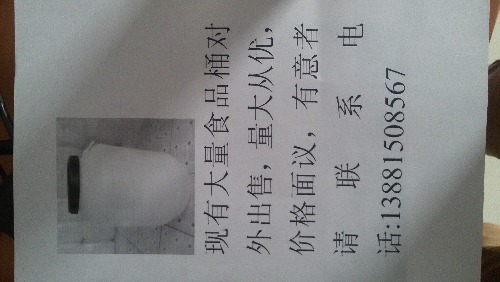 现有大量食品桶对
外出售，量大从优，
价格面议，有意者
请联系电
话:13881508567